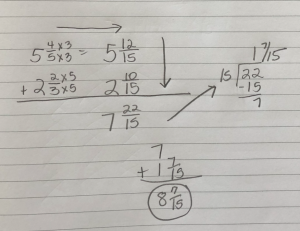 5 4×3/5×3 = 5 12/15
+ 2 2×5/3×5 2 10/15
7 22/15
1 7/15
15 22
-15
7
7
+ 1 7/15
8 7/15